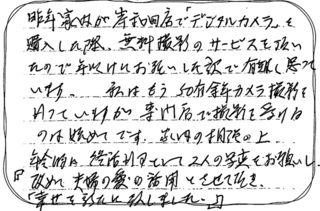 昨年家内が岸和田店で「デジタルカメラ」を
購入した際、無料撮影のサービスを頂い
たので お願いした次で有難く思って
います。 私はもう50有余年カメラ撮影を
行っていますが専門店で撮影を受ける
のは始めてです。家内の相談の上
年令的に 2人の写真をお願いし、
改めて夫婦の愛の活用とさせて頂き、
「幸せを 致しました。」